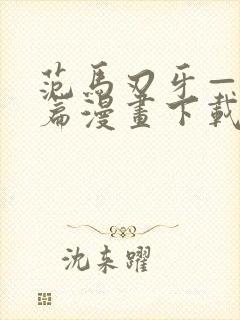 范馬刃牙一
篇漫畫下載
沈来躍